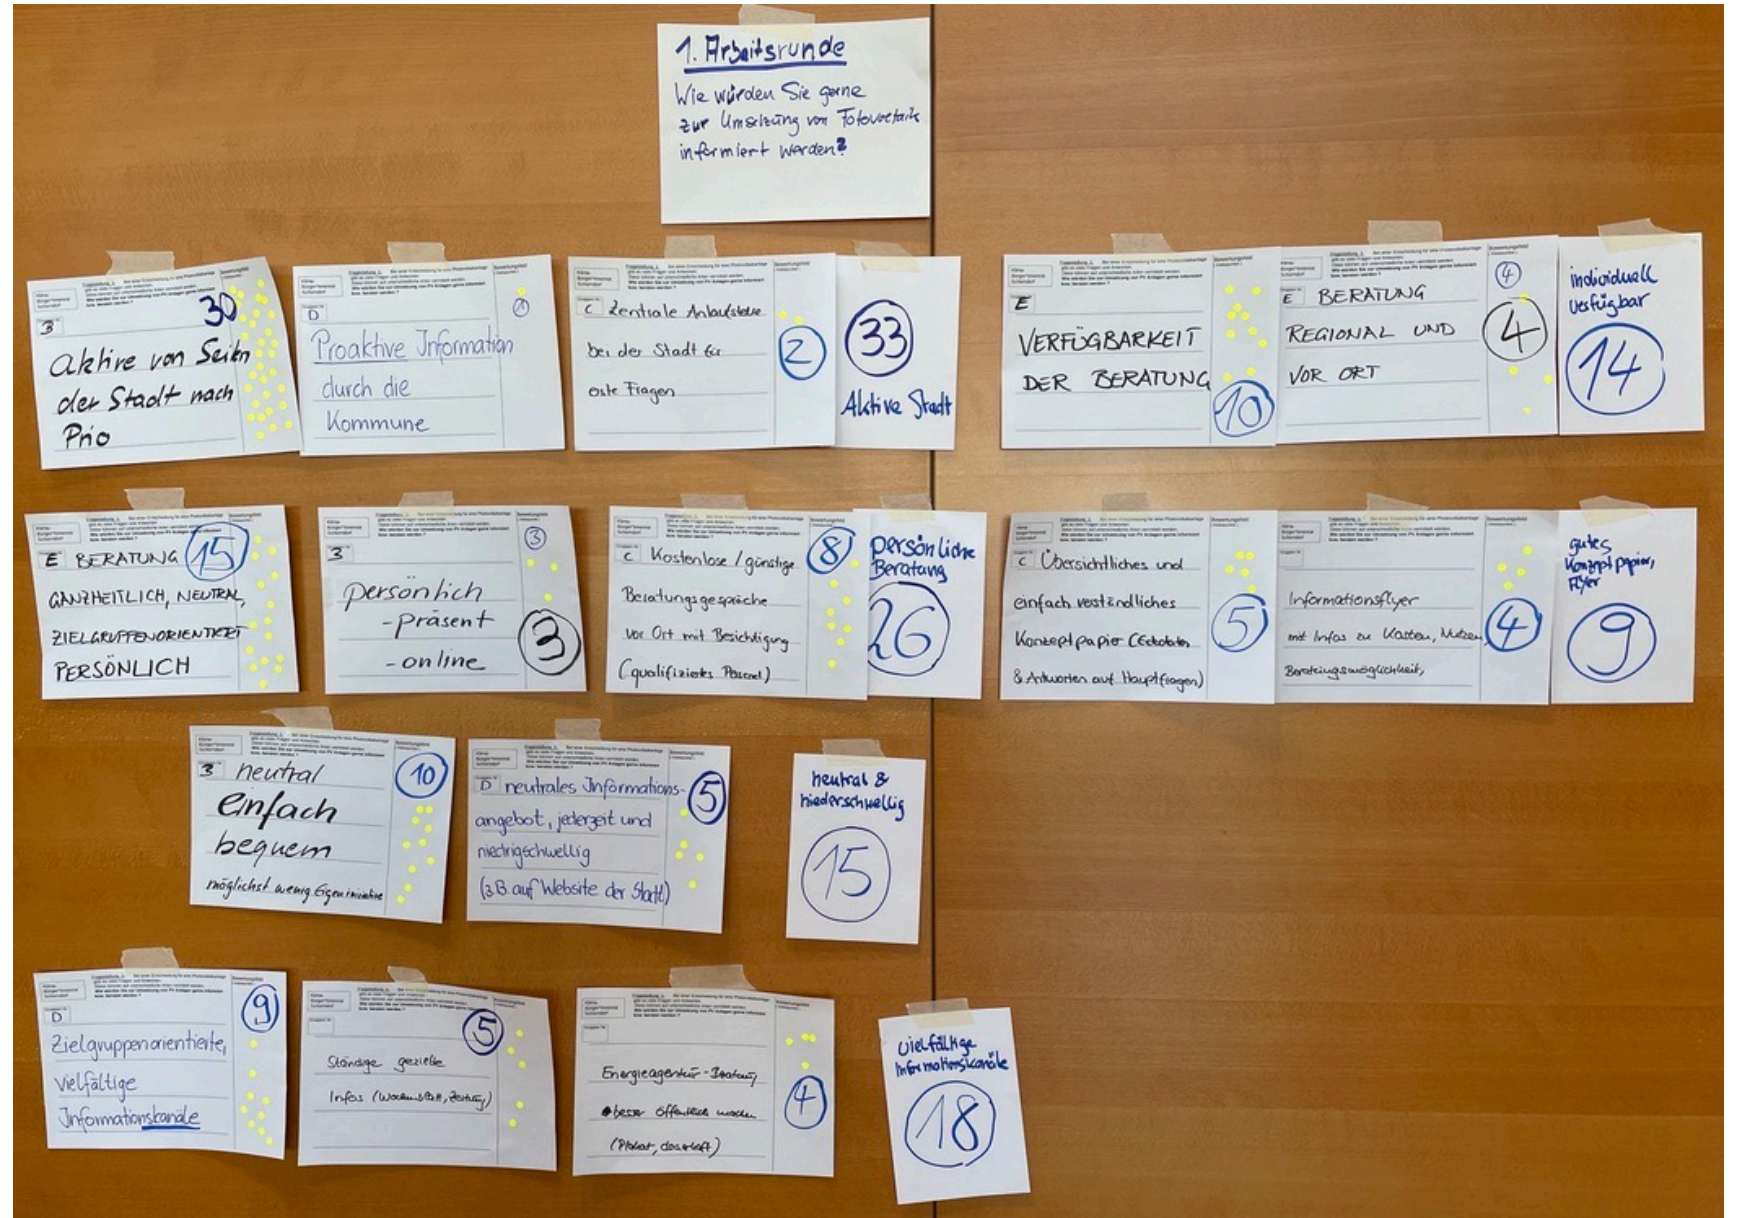 1. Arbeitsrunde
Wie würden Sie gerne
zur Umsetzung von Fotovoltaik
informiert werden?
B
30
Aktive von Seiten
der Stadt nach
Prio
D
1
Proaktive Information
durch die
Kommune
C Zentrale Anlaufstelle
bei der Stadt für
erste Fragen
2
33
Aktive Stadt
E
VERFÜGBARKEIT
DER BERATUNG
10
E BERATUNG
REGIONAL UND
VOR ORT
4
4
individuell
verfügbar
14
E BERATUNG
15
GANZHEITLICH, NEUTRAL,
ZIELGRUPPENORIENTIERT
PERSÖNLICH
B
3
persönlich
-präsent
-online
3
C Kostenlose / günstige
8
Beratungsgespräche
vor Ort mit Besichtigung
(qualifiziertes Personal)
persönliche
Beratung
26
C Übersichtliches und
einfach verständliches
Konzeptpapier (Eckdaten
& Antworten auf Hauptfragen)
5
Informationsflyer
mit Infos zu Kosten, Nutzen,
Beratungsmöglichkeit,
4
gutes
Konzeptpapier,
Flyer
9
B neutral
10
einfach
bequem
möglichst wenig Eigeninitiative
D neutrales Informations-
5
angebot, jederzeit und
niedrigschwellig
(z.B. auf Website der Stadt)
neutral &
niederschwellig
15
D
9
Zielgruppenorientierte,
vielfältige
Informationskanäle
5
Ständige gezielte
Infos (Wochenblatt, Zeitung)
Energieagentur-Beratung
besser öffentlich machen
(Plakat, dauerhaft)
4
vielfältige
Informationskanäle
18